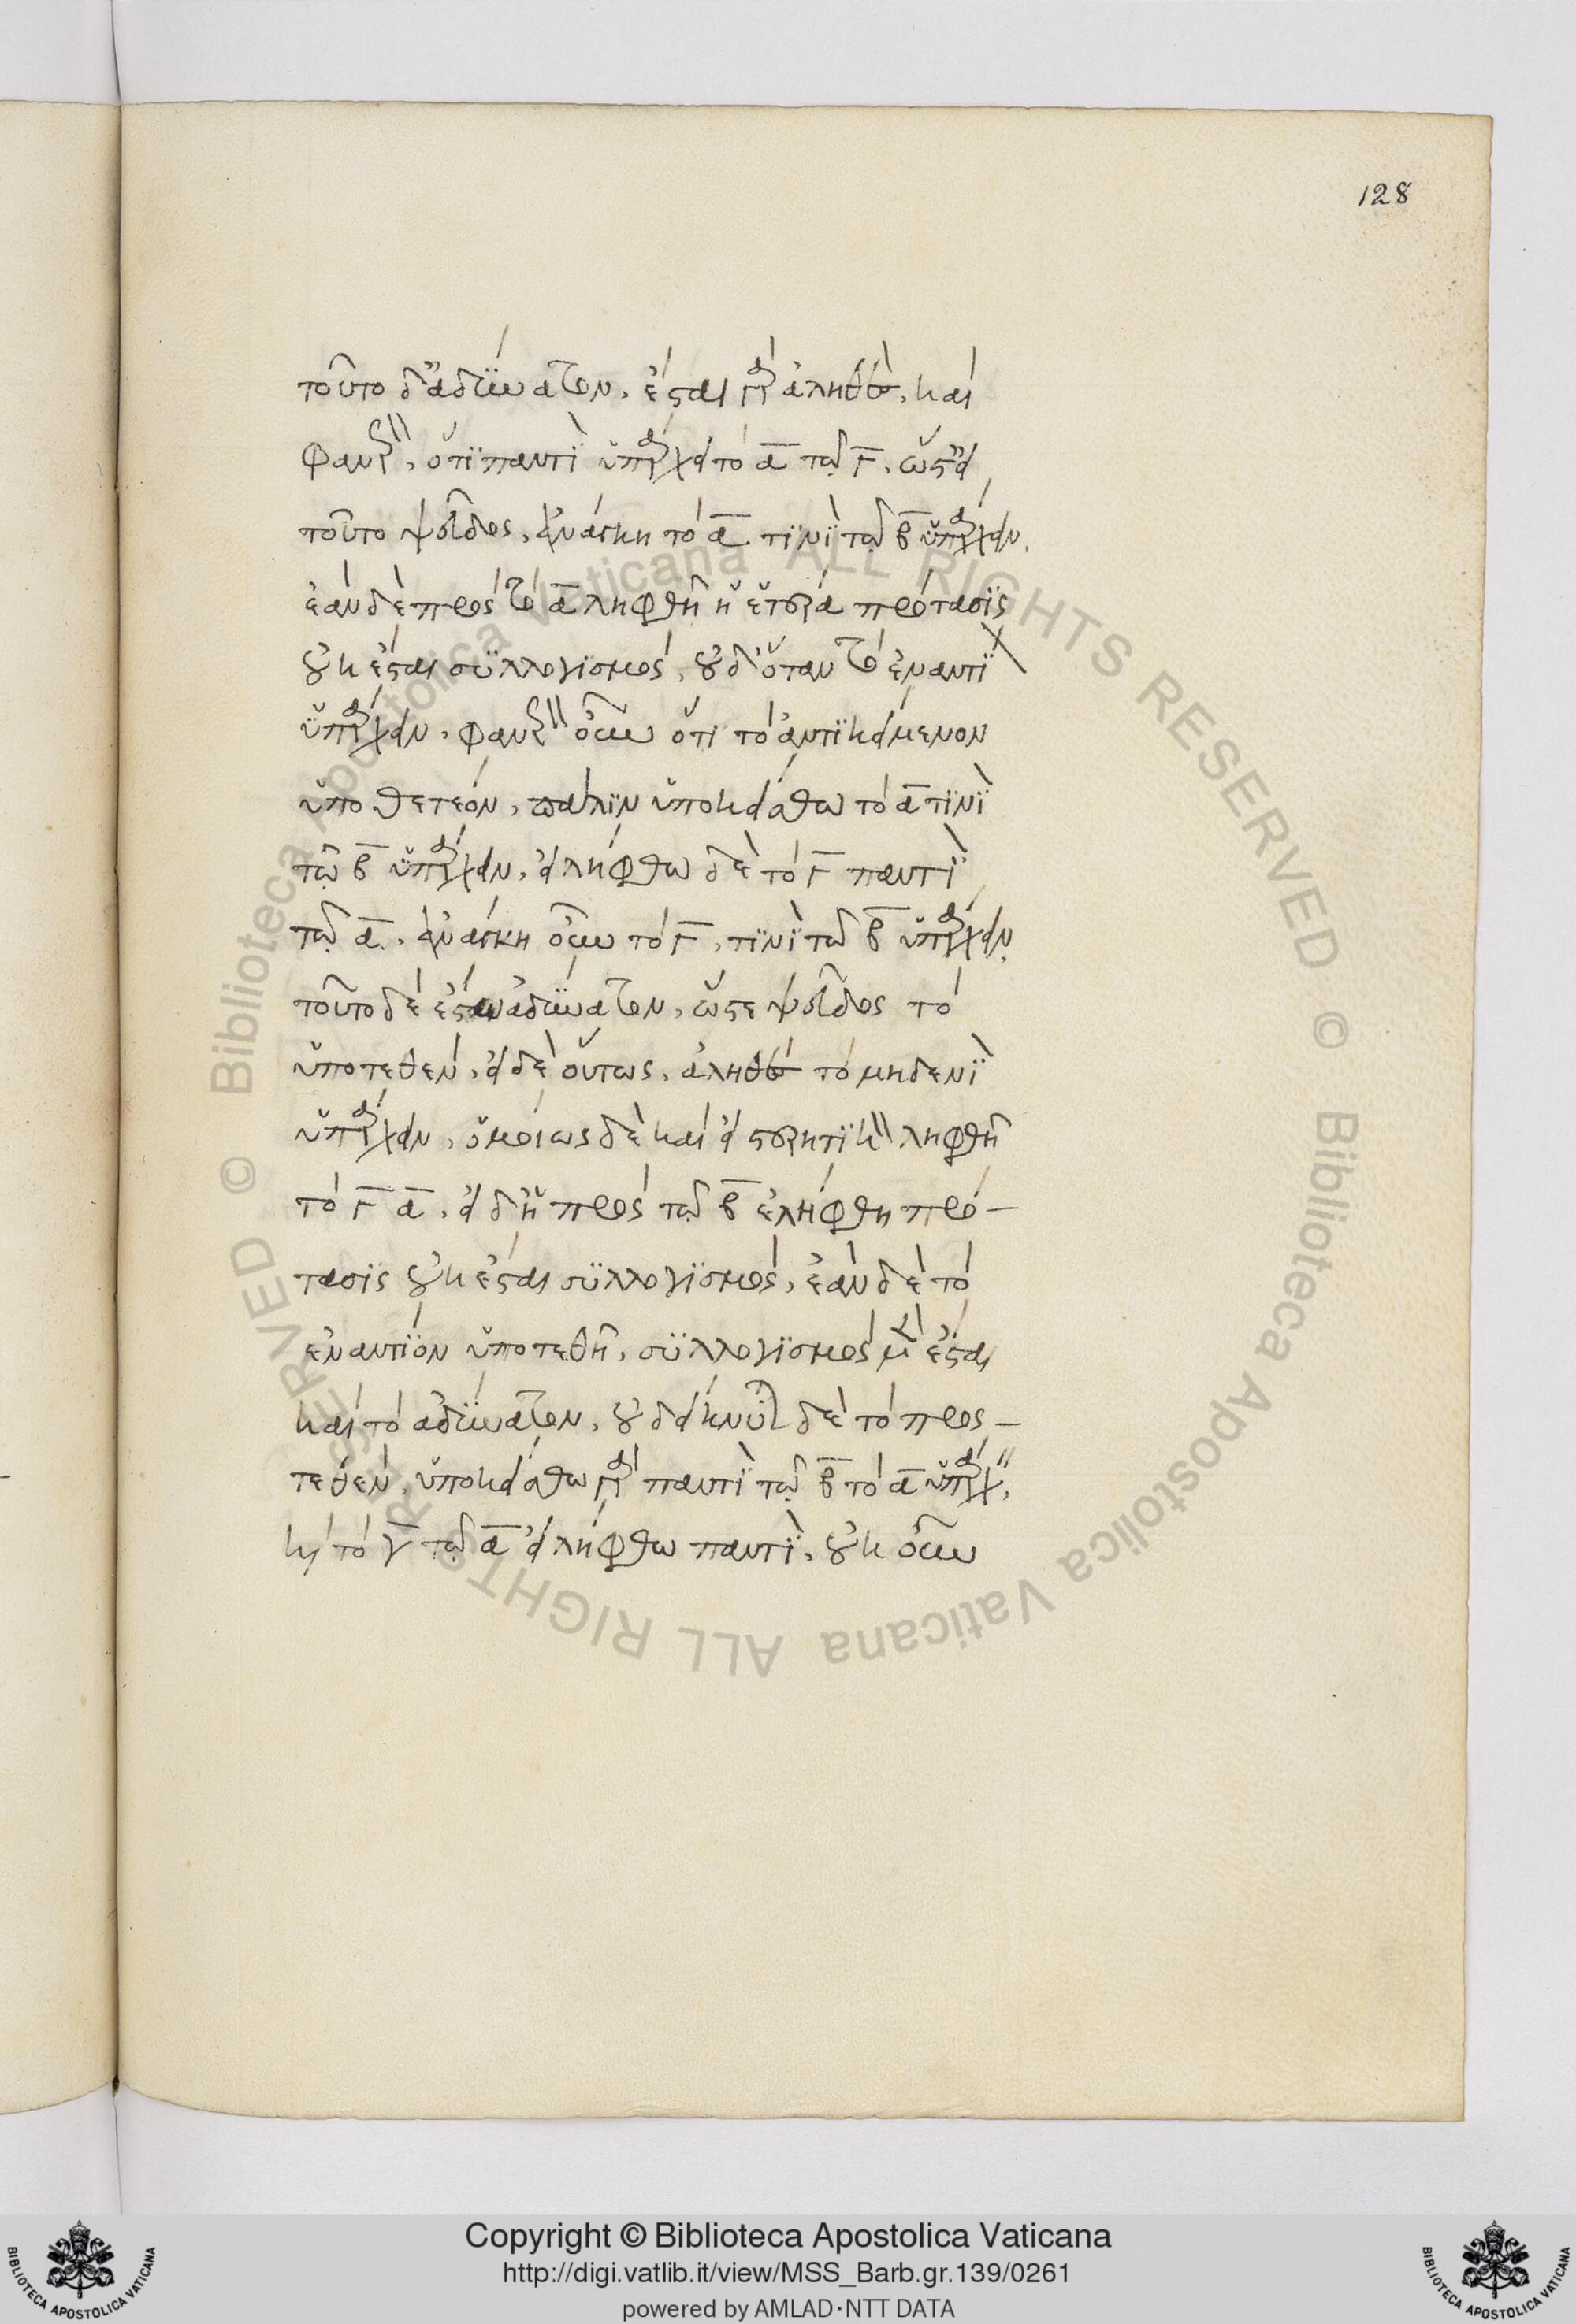 128
τοῦτο δ' ἀδύνατον, ἔσται γὰρ ἀληθὲς, καὶ
φανερὸν, ὅτι παντὶ ὑπάρχει τὸ α τῶ Γ, ὥστ' εἰ
τοῦτο ψεῦδος, ἀνάγκη τὸ α τινὶ τῶ β ὑπάρχειν,
ἐὰν δὲ πρὸς τὸ α ληφθῆ ἡ ἑτέρα πρότασις
οὐκ ἔσται συλλογισμὸς, οὐδ' ὅταν τὸ ἐναντί
ὑπάρχειν, φανερὸν οὖν ὅτι τὸ ἀντικείμενον
ὑποθετέον, πάλιν ὑποκείσθω τὸ α τινὶ
τῶ β ὑπάρχειν, εἰλήφθω δὲ τὸ Γ παντὶ
τῶ α, ἀνάγκη οὖν τὸ Γ, τινὶ τῶ β ὑπάρχειν,
τοῦτο δὲ ἔσται ἀδύνατον, ὥστε ψεῦδος τὸ
ὑποτεθὲν, εἰ δὲ οὕτως, ἀληθὲς τὸ μηδενὶ
ὑπάρχειν, ὁμοίως δὲ καὶ εἰ στερητικὸν ληφθῆ
τὸ Γ α, εἰ δ' ἡ πρὸς τῶ β ἐλήφθη πρό-
τασις οὐκ ἔσται συλλογισμὸς, ἐὰν δὲ τὸ
ἐναντίον ὑποτεθῆ, συλλογισμὸς μὲν ἔσται
καὶ τὸ ἀδύνατον, οὐ δείκνυται δὲ τὸ προς-
τεθὲν, ὑποκείσθω γὰρ παντὶ τῶ β τὸ α ὑπάρχειν,
καὶ τὸ γ τῶ α εἰλήφθω παντὶ, οὐκ οὖν
Copyright © Biblioteca Apostolica Vaticana
http://digi.vatlib.it/view/MSS_Barb.gr.139/0261
powered by AMLAD·NTT DATA
BIBLIOTECA APOSTOLICA VATICANA
BIBLIOTECA APOSTOLICA VATICANA
© Biblioteca Apostolica Vaticana ALL RIGHTS RESERVED
© Biblioteca Apostolica Vaticana ALL RIGHTS RESERVED